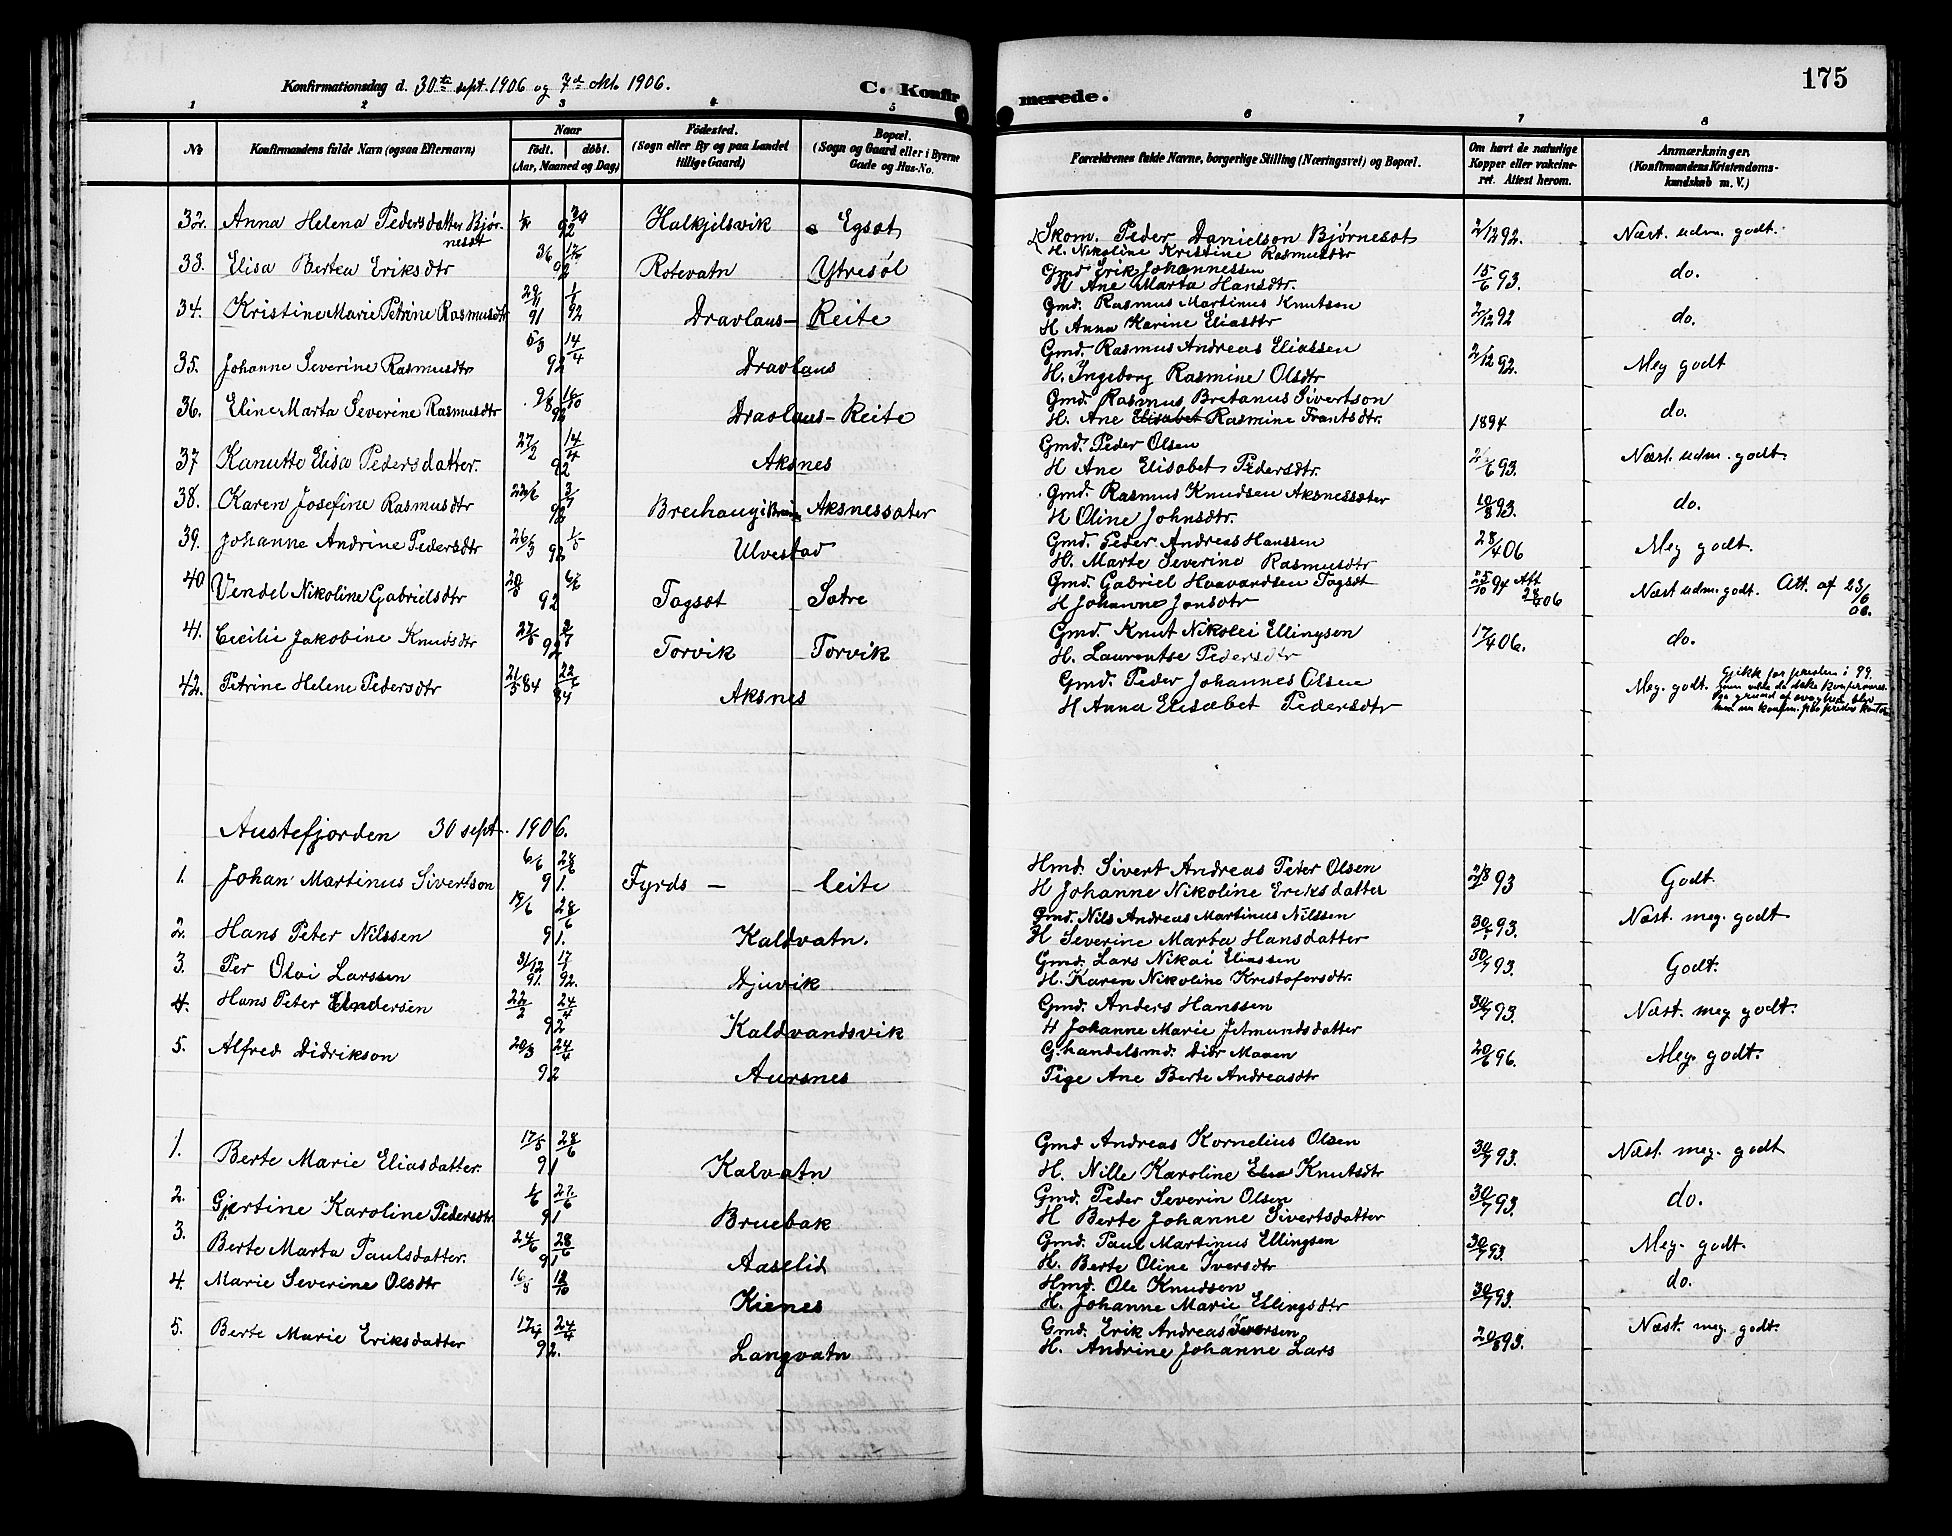 175
Konfirmationsdag d. 30te sept. 1906 og 7de okt. 1906.
C. Konfirmerede.
1 2 3 4 5 6 7 8
No
Konfirmandens fulde Navn (ogsaa Efternavn)
Naar
født. døbt.
(Aar, Maaned og Dag)
Fødested.
(Sogn eller By og paa Landet
tillige Gaard)
Bopæl.
(Sogn og Gaard eller i Byerne
Gade og Hus-No.
Forældrenes fulde Navne, borgerlige Stilling (Næringsvei) og Bopæl.
Om havt de naturlige
Kopper eller vakcine-
ret. Attest herom.
Anmærkninger.
(Konfirmandens Kristendoms-
kundskab m. V.)
32. Anna Helena Pedersdatter Bjør- 92 Halkjelsvik Egsæt Skom. Peder Danielson Bjørnesæt 2/12 92. Næst. udm. godt.
nesæt H. Nikoline Kristine Rasmusdtr
33. Elisa Bertea Eriksdtr 92 Rotevatn Ytresøl Gmd Erik Johannessen 15/6 93. do.
H Ane Marta Hansdtr.
34. Kristine Marie Petrine Rasmusdtr 29/11 91 92 Dravlaus- Reite Gmd. Rasmus Martinus Knutsen 2/12 92 do.
H Anna Karine Eliasdtr
35. Johanne Severine Rasmusdtr 5/3 14/4 92 Dravlaus Gmd. Rasmus Andreas Eliassen 2/12 92. Meg godt
H. Ingeborg Rasmine Olsdtr
36. Eline Marta Severine Rasmusdtr 9/8 16/10 92 Dravlaus- Reite Gmd. Rasmus Bretanus Sivertson do.
H. Ane Elisabet Rasmine Frantsdtr. 1894
37 Kanutte Elisa Pedersdatter. 27/2 14/4 92 Aksnes Gmd. Peder Olsen Næst. udm. godt.
H Ane Elisabet Pedersdtr. 93.
38. Karen Josefine Rasmusdtr 22/6 3/7 92 Brechaug Aksnessæter Gmd. Rasmus Knudsen Aksnessæter 10/8 93. do.
H Oline Johnsdtr.
39. Johanne Andrine Pedersdtr 26/3 92 Ulvestad Gmd. Peder Andreas Hanssen 28/4 06 Meg godt.
H. Marte Severine Rasmusdtr
40 Vendel Nikoline Gabrielsdtr 92 Togsæt Satre Gmd. Gabriel Haavardsen Togsæt 25/10 94 Aft 28/4 06 Næst udm. godt. Att. af 23/6 06.
H Johanne Jonsdtr
41. Cecilie Jakobine Knudsdtr 92 Torvik Torvik Gmd. Knut Nikolei Ellingson 17/4 06. do.
H. Laurentse Pedersdtr
42. Petrine Helene Pedersdtr 21/5 84 22/6 84 Aksnes Gmd. Peder Johannes Olsen Meg. godt. Gjikk for presten i 99.
H Anna Elisabet Pedersdtr
Austefjorden 30 sept. 1906.
1. Johan Martinus Sivertson 6/6 28/6 91. Fyrds - leite Hmd. Sivert Andreas Peter Olsen 93 Godt.
H Johanne Nikoline Eriksdatter
2. Hans Peter Nilssen 28/6 91. Kaldvatn. Gmd. Nils Andreas Martinus Nilssen 30/7 93. Næst. meg. godt
H Severine Marta Hansdatter
3. Per Olai Larssen 31/12 91. 92. Djuvik Gmd. Lars Nikai Eliassen 30/7 93. Godt.
H. Karen Nikoline Kristofersdtr.
4. Hans Peter Andersen 22/2 24/4 92 Kaldvandsvik Gmd. Anders Hanssen 30/7 93. Næst. meg godt.
H Johanne Marie Jetmundsdatter
5. Alfred Didrikson 20/3 24/4 92 Aursnes G.handelsmd. Didr Maaen 20/6 96. Meg. godt.
Pige Ane Berte Andreasdtr
1. Berte Marie Eliasdatter. 17/5 28/6 91 Kalvatn Gmd Andreas Kornelius Olsen 30/7 93. Næst. meg. godt
H. Nille Karoline Elia Knutsdtr
2. Gjertine Karoline Pedersdtr 1/6 27/6 91 Bruebak Gmd. Peder Severin Olsen 30/7 93. do.
H Berte Johanne Sivertsdatter
3. Berte Marta Paulsdatter. 24/6 28/6 91 Aaselid Gmd. Paul Martinus Ellingsen 30/7 93. Meg. godt.
H. Berte Oline Iversdtr
4. Marie Severine Olsdtr 16/8 18/10 Kienes Hmd. Ole Knudsen 30/7 93. do.
H. Johanne Marie Ellingsdtr
5. Berte Marie Eriksdatter 17/4 24/4 92. Langvatn Gmd. Erik Andreas Iversen 20/8 93. Næst. meg. godt.
H. Andrine Johanne Lars